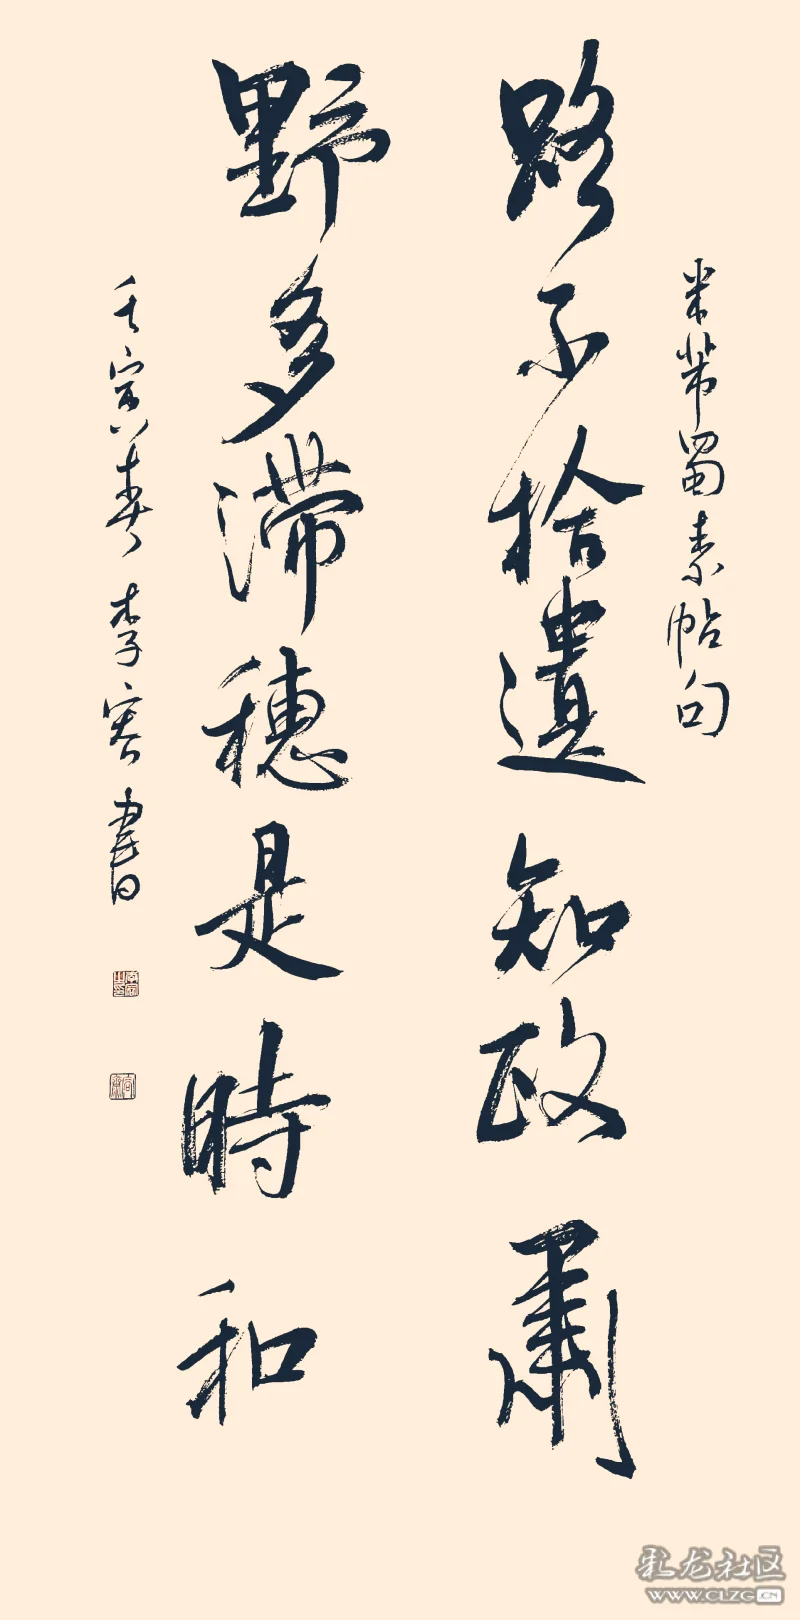 米芾蜀素帖句
路不拾遺知政肅
野多滯穗是時和
壬寅春李書
彩龙社区
www.CLZG.CN